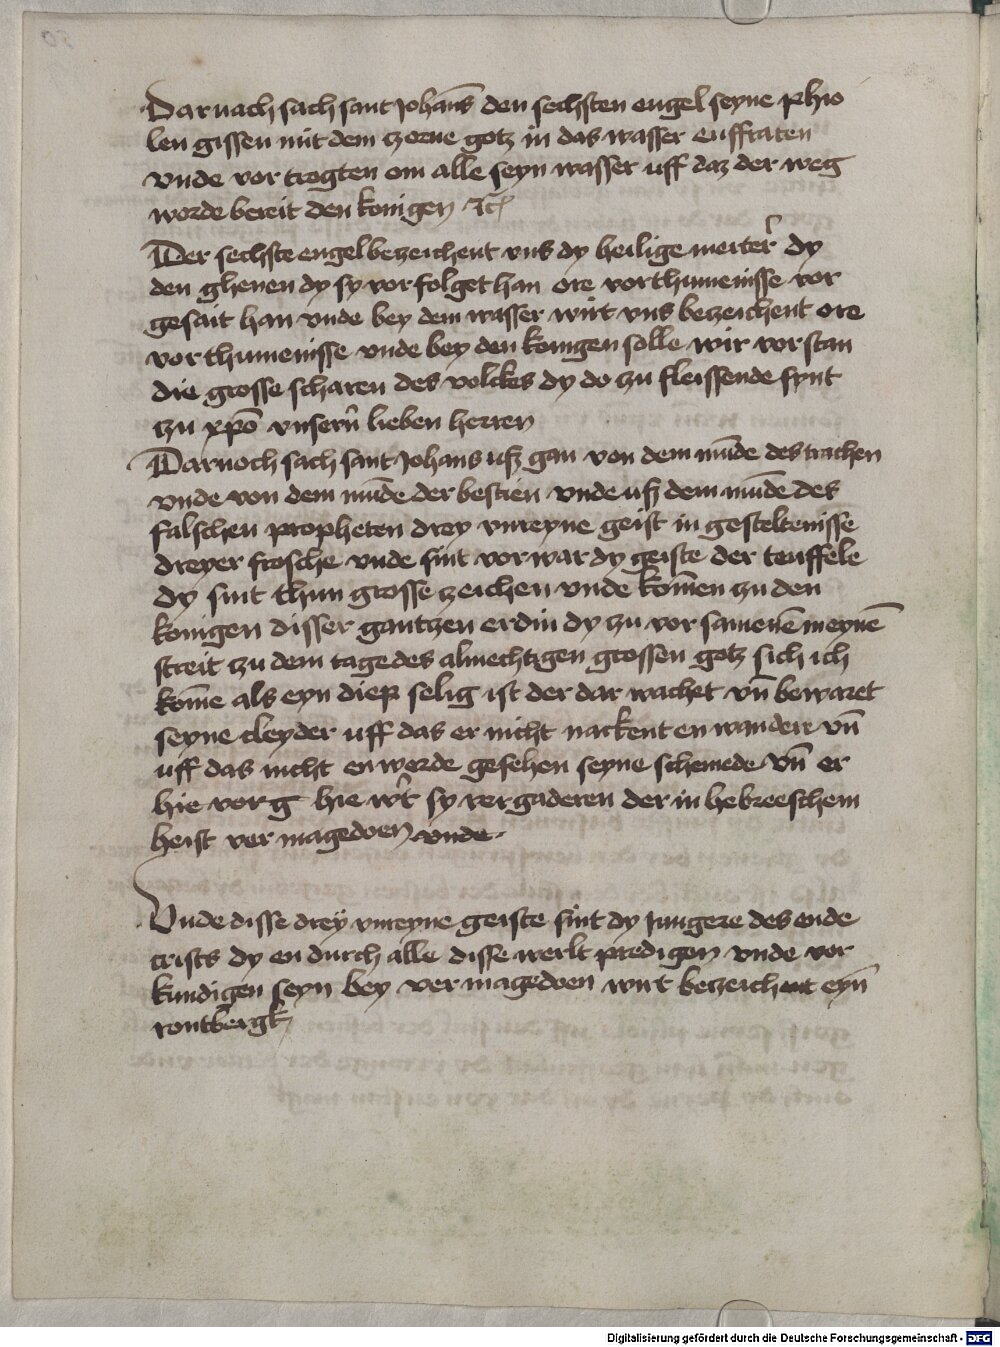 Dar nach sach sant Johans̄ den sechsten engel seyne phio
len gissen mit dem zorne gotz in das wasser eufftaten
vnde vor trogten om alle seyn wasser uff daz der weg
worde bereit den konigen ⁊c̄
Der sechste engel bezeichent vns dy heilige merter̄ dy
den ghenen dy sy vorfolget han ore vorthumenisse vor
gesait han vnde bey dem wasser wirt vns bezeichent ore
vorthumenisse vnde bey den konigen solle wir vorstan
die grosse scharen des volckes dy do zu fleissende synt
zu xp̄o vnsern̄ lieben herren
Darnoch sach sant Johans uß gan von dem mūde des trachen
vnde von dem mūde der bestien vnde uß dem mūde des
falschen propheten drey vnreyne geist in gesteltenisse
dreyer frosche vnde sint vorwar dy geiste der teuffele
dy sint thun grosse zeichen vnde kom̄en zu den
konigen disser gantzen erdin dy zu vor samenē in eynē
streit zu dem tage des almechtigen grossen gotz sich ich
kom̄e als eyn diep selig ist der dar wachet vn̄ bewaret
seyne cleyder uff das er nicht nackent en wandere vn̄
uff das nicht en werde gesehen seyne schemede vn̄ er
hie vor g hie wt̄ sy vergaderen der in hebreeschem
heist vermagedoen vnde
Vnde disse drey vnreyne geiste sint dy Jungere des ende
crists dy en durch alle disse werlt predigen vnde vor
kundigen seyn bey vermagedoen wirt bezeichent eyn̄
rontbergk
Digitalisierung gefördert durch die Deutsche Forschungsgemeinschaft - DFG